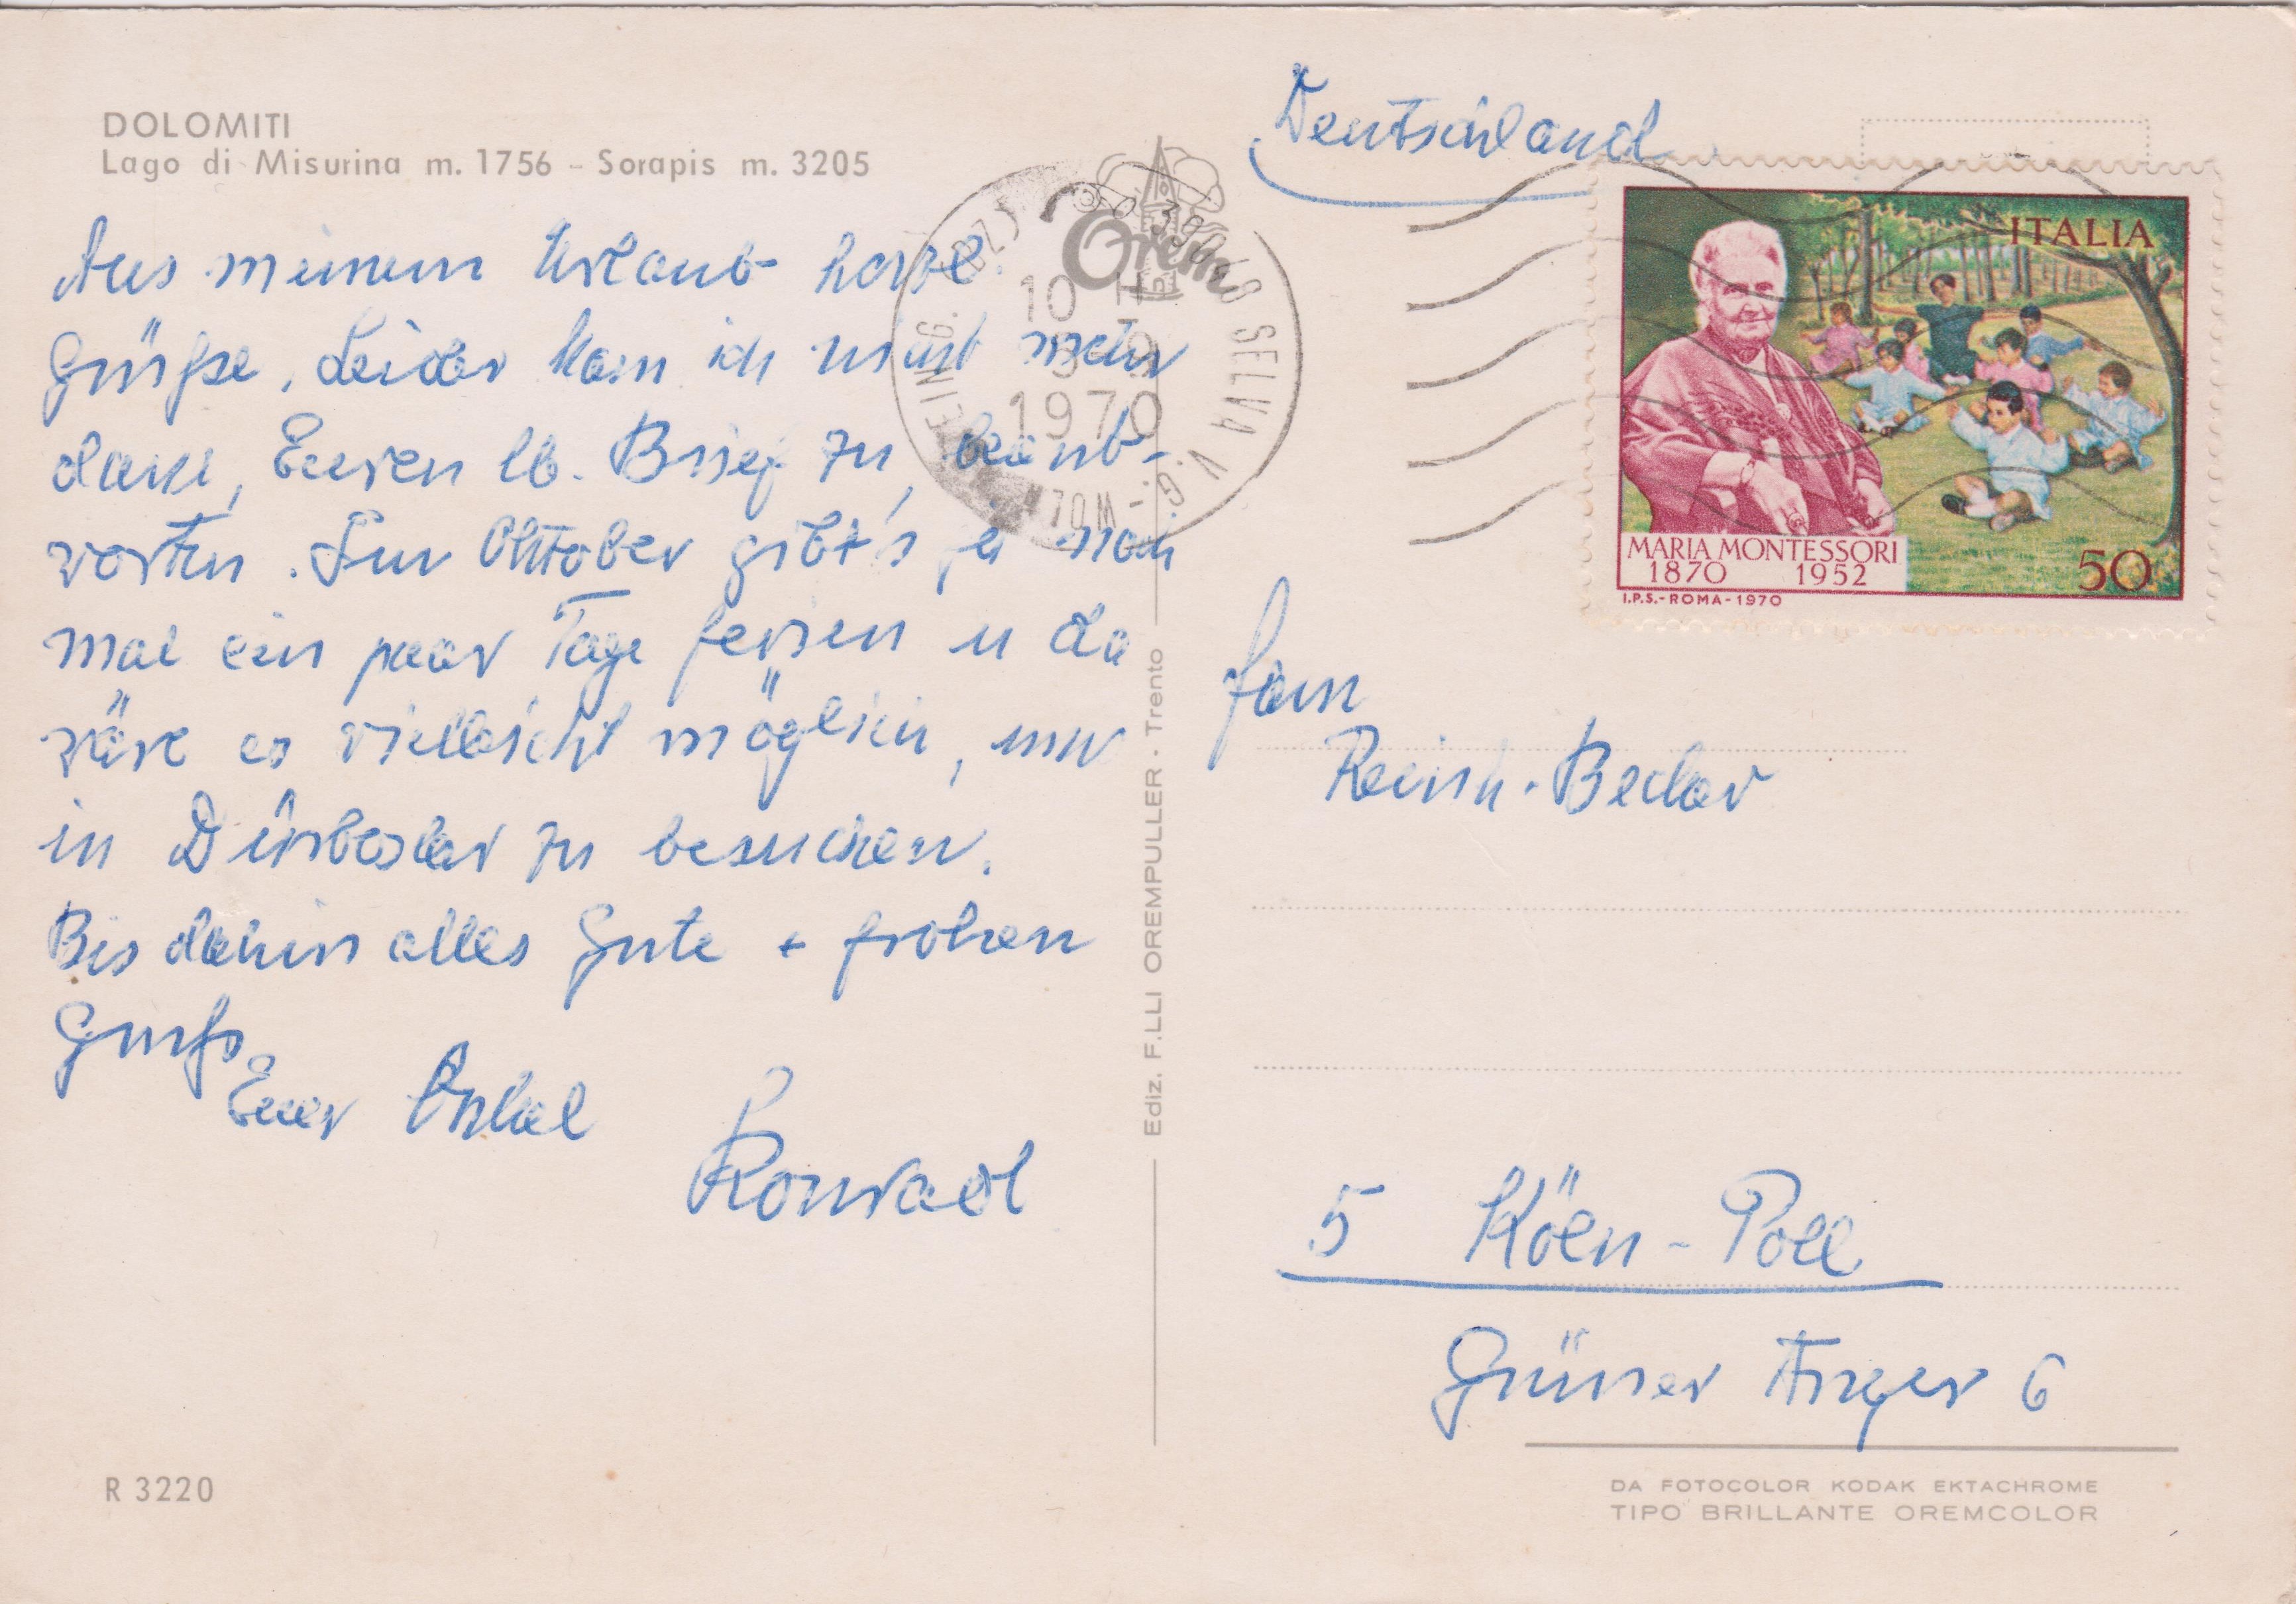 DOLOMITI
Lago di Misurina m. 1756 - Sorapis m. 3205
Aus meinem Urlaub herzl.
Grüße. Leider kam ich nicht mehr
dazu, Euren lb. Brief zu beant-
worten. Im Oktober gibt's ja noch
mal ein paar Tage Ferien u da
wäre es vielleicht möglich, um
in zu besuchen.
Bis dahin alles Gute + frohen
Gruß
Euer Onkel
Konrad
R 3220
Ediz. F.LLI OREMPULLER · Trento
Orem
39048 SELVA V. G. - WOLK
10 H
1970
Deutschland
ITALIA
MARIA MONTESSORI
1870 1952
50
I.P.S.-ROMA-1970
Fam
Becker
5 Köln-Poll
Grüner Anger 6
DA FOTOCOLOR KODAK EKTACHROME
TIPO BRILLANTE OREMCOLOR